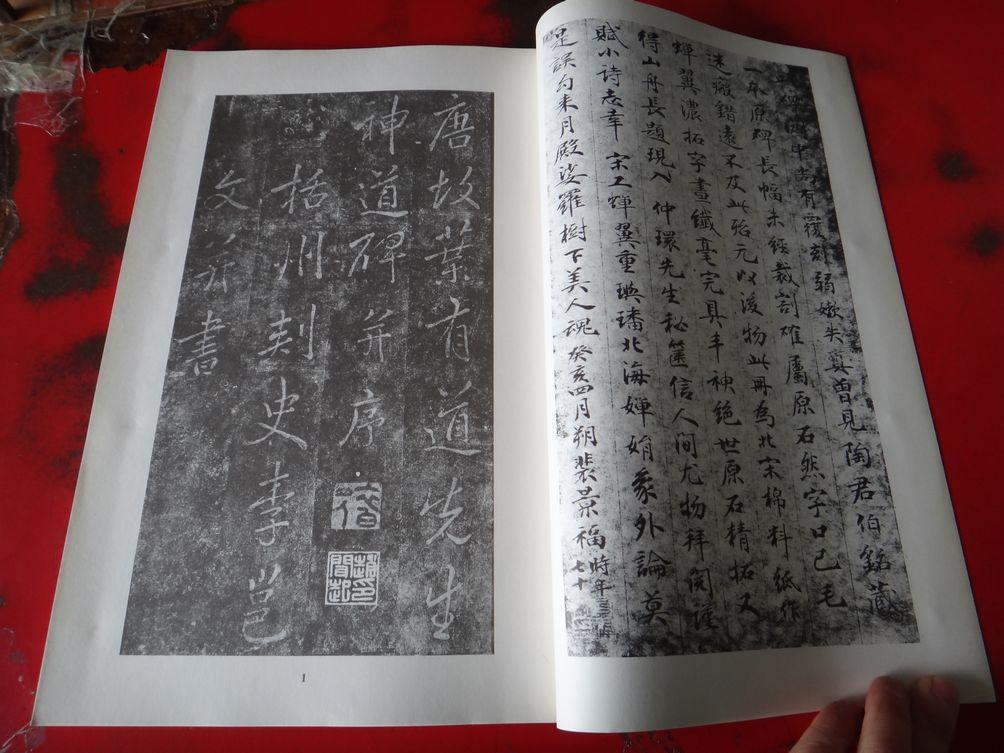 中尚有覆刻弱嫩失真曾見陶君伯銘藏
一本原碑長幅未經裁割確屬原石然字口已毛
迷瘢錯遠不及此殆元以後物此冊為北宋棉料紙作
蟬翼濃拓字畫纖毫完具丰神絕世原石精拓又
得山舟長題現入 仲環先生秘篋信人間尤物拜閱謹
賦小詩志幸 宋工蟬翼重璵璠北海嬋娟象外論莫
是誤勾來月殿娑羅樹下美人魂 癸亥四月朔裴景福時年七十
唐故葉有道先生
神道碑并序
括州刺史李邕
文并書
1